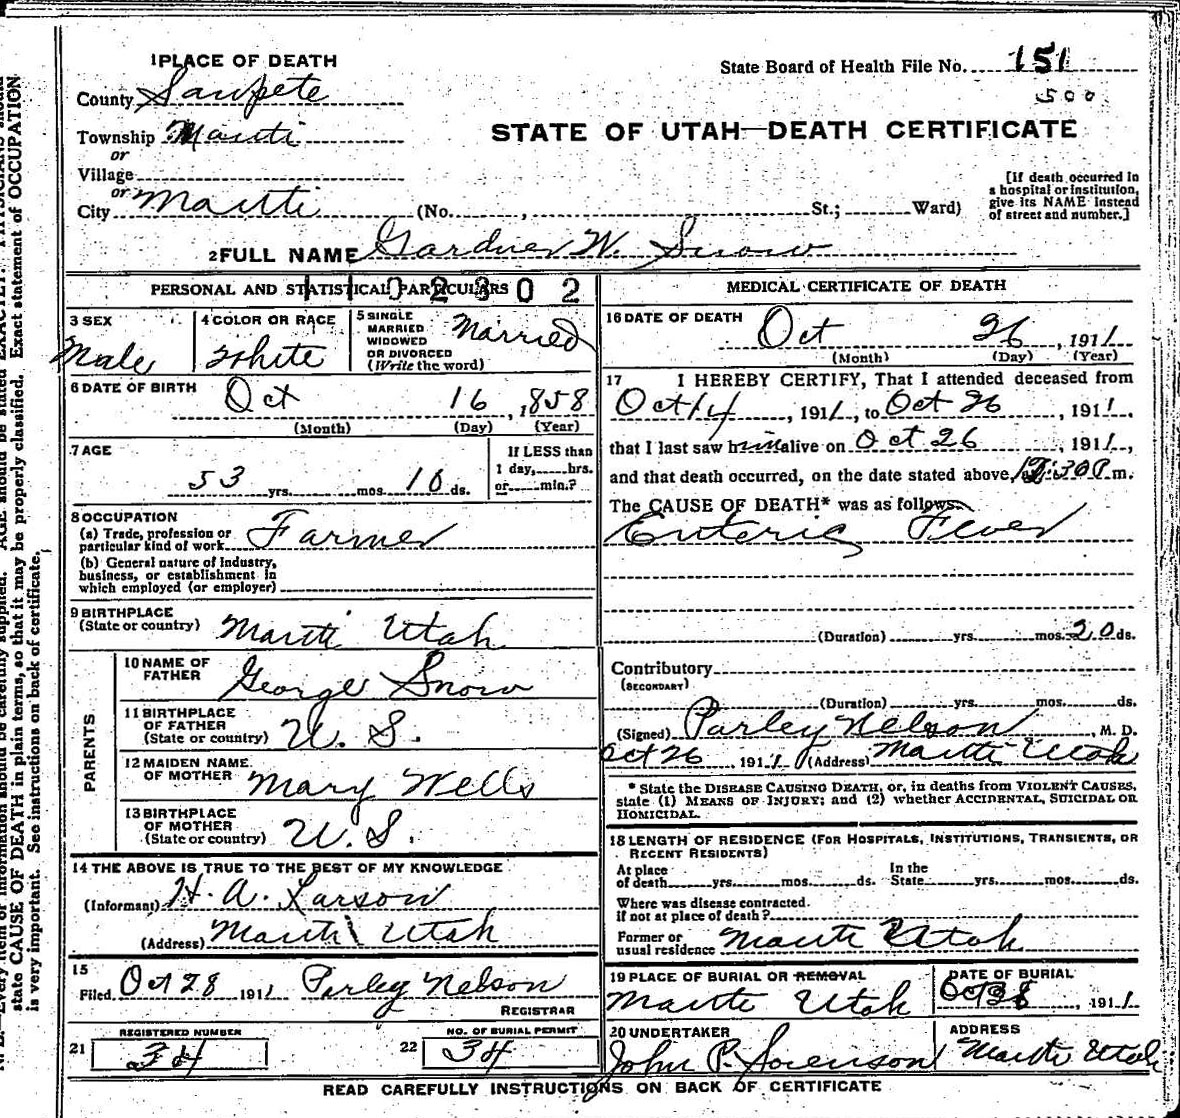 1 PLACE OF DEATH
County Sanpete
Township Manti
or
Village
or
City Manti (No. , St.; Ward)
State Board of Health File No. 151
500
STATE OF UTAH—DEATH CERTIFICATE
[If death occurred in
a hospital or institution,
give its NAME instead
of street and number.]
2 FULL NAME Gardner W. Snow
PERSONAL AND STATISTICAL PARTICULARS
1102302
3 SEX
Male
4 COLOR OR RACE
White
5 SINGLE
MARRIED
WIDOWED
OR DIVORCED
(Write the word)
Married
6 DATE OF BIRTH
Oct 16, 1858
(Month) (Day) (Year)
7 AGE
53 yrs. mos. 10 ds.
If LESS than
1 day, hrs.
or min.?
8 OCCUPATION
(a) Trade, profession or
particular kind of work Farmer
(b) General nature of Industry,
business, or establishment in
which employed (or employer)
9 BIRTHPLACE
(State or country) Manti Utah
PARENTS
10 NAME OF
FATHER George Snow
11 BIRTHPLACE
OF FATHER
(State or country) U. S.
12 MAIDEN NAME
OF MOTHER Mary Wells
13 BIRTHPLACE
OF MOTHER
(State or country) U. S.
14 THE ABOVE IS TRUE TO THE BEST OF MY KNOWLEDGE
(Informant) H. A. Larson
(Address) Manti Utah
15
Filed Oct 28 1911 Parley Nelson
REGISTRAR
REGISTERED NUMBER
21 34
NO. OF BURIAL PERMIT
22 34
MEDICAL CERTIFICATE OF DEATH
16 DATE OF DEATH
Oct 26, 1911
(Month) (Day) (Year)
17 I HEREBY CERTIFY, That I attended deceased from
Oct 14, 1911, to Oct 26, 1911,
that I last saw him alive on Oct 26, 1911,
and that death occurred, on the date stated above, :30 P m.
The CAUSE OF DEATH* was as follows:
Enteric Fever
(Duration) yrs. mos. 20 ds.
Contributory
(SECONDARY)
(Duration) yrs. mos. ds.
(Signed) Parley Nelson, M. D.
Oct 26, 1911 (Address) Manti Utah
* State the DISEASE CAUSING DEATH, or, in deaths from VIOLENT CAUSES,
state (1) MEANS OF INJURY; and (2) whether ACCIDENTAL, SUICIDAL OR
HOMICIDAL.
18 LENGTH OF RESIDENCE (FOR HOSPITALS, INSTITUTIONS, TRANSIENTS, OR
RECENT RESIDENTS)
At place
of death yrs. mos. ds.
In the
State yrs. mos. ds.
Where was disease contracted.
if not at place of death?
Former or
usual residence Manti Utah
19 PLACE OF BURIAL OR REMOVAL
Manti Utah
DATE OF BURIAL
Oct 28, 1911
20 UNDERTAKER
John P. Sorenson
ADDRESS
Manti Utah
READ CAREFULLY INSTRUCTIONS ON BACK OF CERTIFICATE
state CAUSE OF DEATH in plain terms, so that it may be properly classified. Exact statement of OCCUPATION
is very important. See instructions on back of certificate.